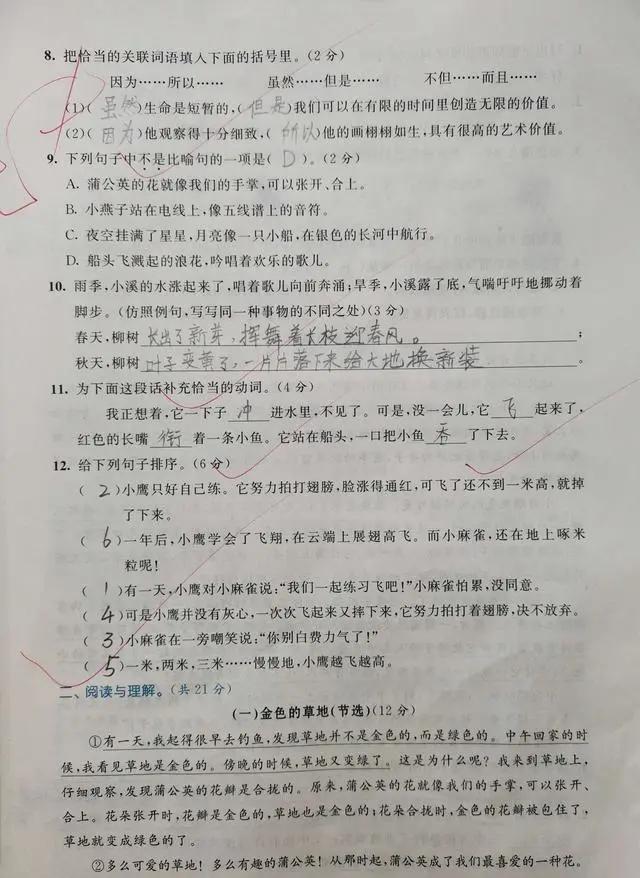 8. 把恰当的关联词语填入下面的括号里。(2分)
因为……所以…… 虽然……但是…… 不但……而且……
(1)( 虽然 )生命是短暂的,( 但是 )我们可以在有限的时间里创造无限的价值。
(2)( 因为 )他观察得十分细致,( 所以 )他的画栩栩如生,具有很高的艺术价值。
9. 下列句子中不是比喻句的一项是( D )。(2分)
A. 蒲公英的花就像我们的手掌,可以张开、合上。
B. 小燕子站在电线上,像五线谱上的音符。
C. 夜空挂满了星星,月亮像一只小船,在银色的长河中航行。
D. 船头飞溅起的浪花,吟唱着欢乐的歌儿。
10. 雨季,小溪的水涨起来了,唱着歌儿向前奔涌;旱季,小溪露了底,气喘吁吁地挪动着
脚步。(仿照例句,写写同一种事物的不同之处)(3分)
春天,柳树 长出了新芽,挥舞着长枝迎春风。 ;
秋天,柳树 叶子变黄了,一片片落下来给大地换新装 。
11. 为下面这段话补充恰当的动词。(4分)
我正想着,它一下子 冲 进水里,不见了。可是,没一会儿,它 飞 起来了,
红色的长嘴 衔 着一条小鱼。它站在船头,一口把小鱼 吞 了下去。
12. 给下列句子排序。(6分)
( 2 )小鹰只好自己练。它努力拍打翅膀,脸涨得通红,可飞了还不到一米高,就掉
了下来。
( 6 )一年后,小鹰学会了飞翔,在云端上展翅高飞。而小麻雀,还在地上啄米
粒呢!
( 1 )有一天,小鹰对小麻雀说:“我们一起练习飞吧!”小麻雀怕累,没同意。
( 4 )可是小鹰并没有灰心,一次次飞起来又摔下来,它努力拍打着翅膀,决不放弃。
( 3 )小麻雀在一旁嘲笑说:“你别白费力气了!”
( 5 )一米,两米,三米……慢慢地,小鹰越飞越高。
二、阅读与理解。(共21分)
(一)金色的草地(节选)(12分)
①有一天,我起得很早去钓鱼,发现草地并不是金色的,而是绿色的。中午回家的时
候,我看见草地是金色的。傍晚的时候,草地又变绿了。这是为什么呢?我来到草地上,
仔细观察,发现蒲公英的花瓣是合拢的。原来,蒲公英的花就像我们的手掌,可以张开、
合上。花朵张开时,花瓣是金色的,草地也是金色的;花朵合拢时,金色的花瓣被包住了,
草地就变成绿色的了。
②多么可爱的草地!多么有趣的蒲公英!从那时起,蒲公英成了我们最喜爱的一种花。